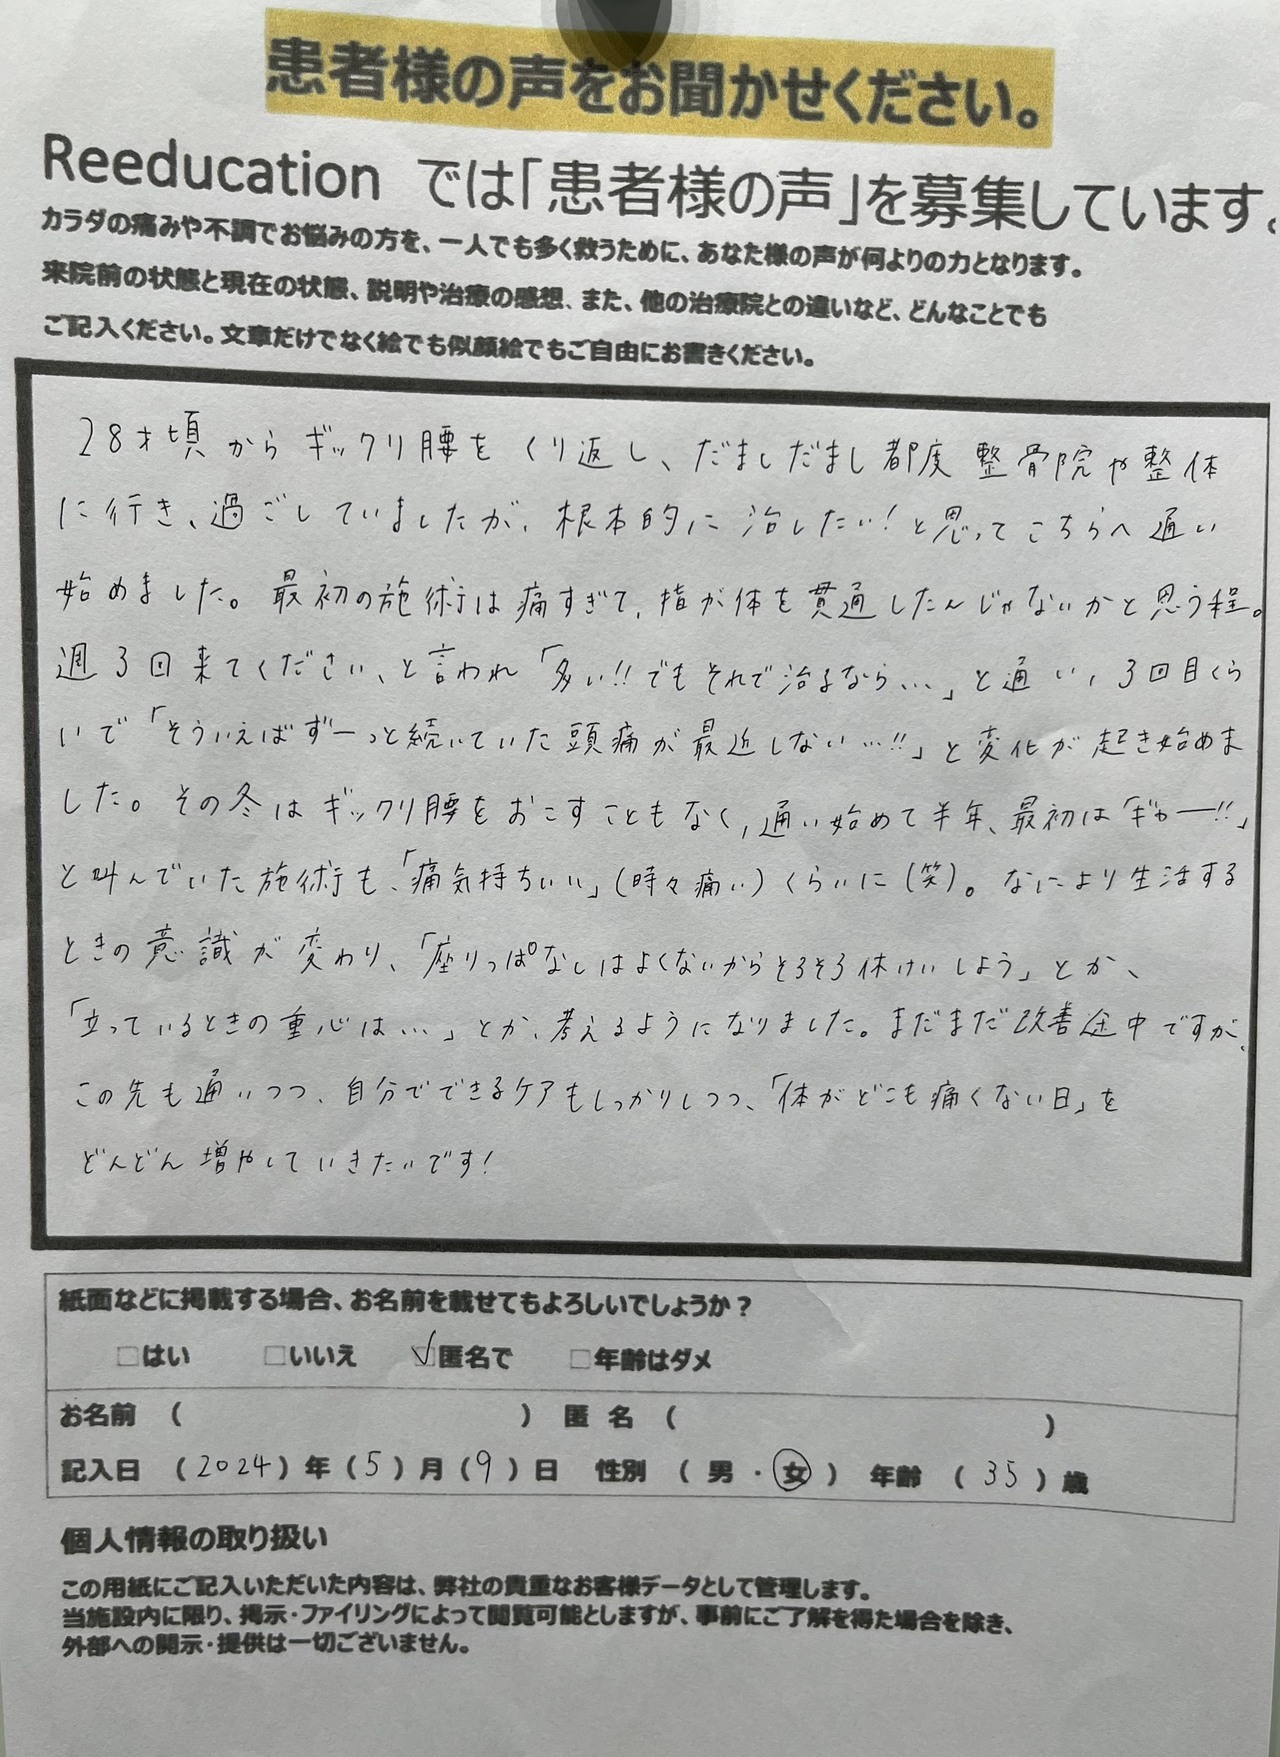 患者様の声をお聞かせください。
Reeducation では「患者様の声」を募集しています。
カラダの痛みや不調でお悩みの方を、一人でも多く救うために、あなた様の声が何よりの力となります。
来院前の状態と現在の状態、説明や治療の感想、また、他の治療院との違いなど、どんなことでも
ご記入ください。文章だけでなく絵でも似顔絵でもご自由にお書きください。
28才頃からギックリ腰をくり返し、だましだまし都度整骨院や整体
に行き、過ごしていましたが、根本的に治したい!と思ってこちらへ通い
始めました。最初の施術は痛すぎて、指が体を貫通したんじゃないかと思う程。
週3回来てください、と言われ「多い!!でもそれで治るなら…」と通い、3回目くら
いで「そういえばずーっと続いていた頭痛が最近しない…!!」と変化が起き始めま
した。その冬はギックリ腰をおこすこともなく、通い始めて半年、最初は「ギャー!!」
と叫んでいた施術も、「痛気持ちいい」(時々痛い)くらいに(笑)。なにより生活する
ときの意識が変わり、「座りっぱなしはよくないからそろそろ休けいしよう」とか、
「立っているときの重心は…」とか、考えるようになりました。まだまだ改善途中ですが、
この先も通いつつ、自分でできるケアもしっかりしつつ、「体がどこも痛くない日」を
どんどん増やしていきたいです!
紙面などに掲載する場合、お名前を載せてもよろしいでしょうか?
□はい □いいえ ☑匿名で □年齢はダメ
お名前 ( ) 匿名 ( )
記入日 (2024)年(5)月(9)日 性別 (男・女) 年齢 (35)歳
個人情報の取り扱い
この用紙にご記入いただいた内容は、弊社の貴重なお客様データとして管理します。
当施設内に限り、掲示・ファイリングによって閲覧可能としますが、事前にご了解を得た場合を除き、
外部への開示・提供は一切ございません。